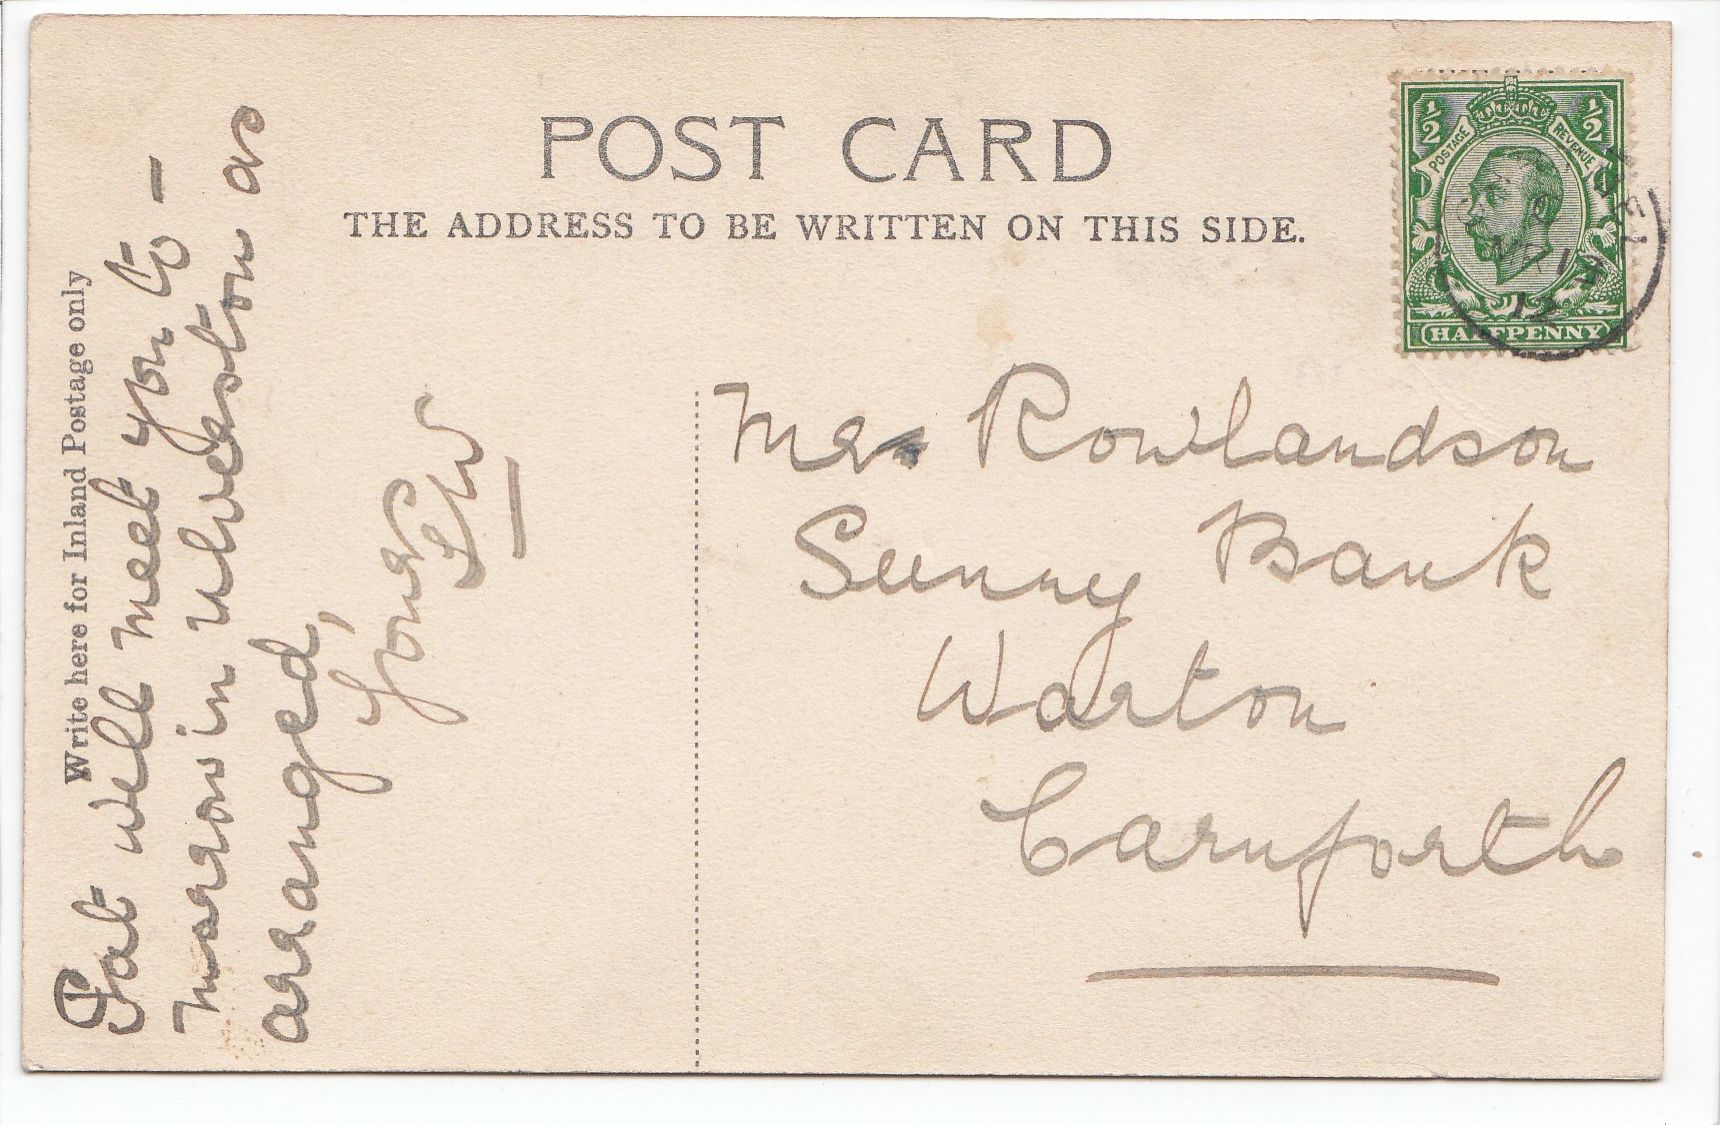 POST CARD
THE ADDRESS TO BE WRITTEN ON THIS SIDE.
Write here for Inland Postage only
Pat will meet you to-
morrow in Ulverston as
arranged,
Yours
½ ½
POSTAGE REVENUE
HALFPENNY
12
Rowlandson
Sunny Bank
Warton
Carnforth